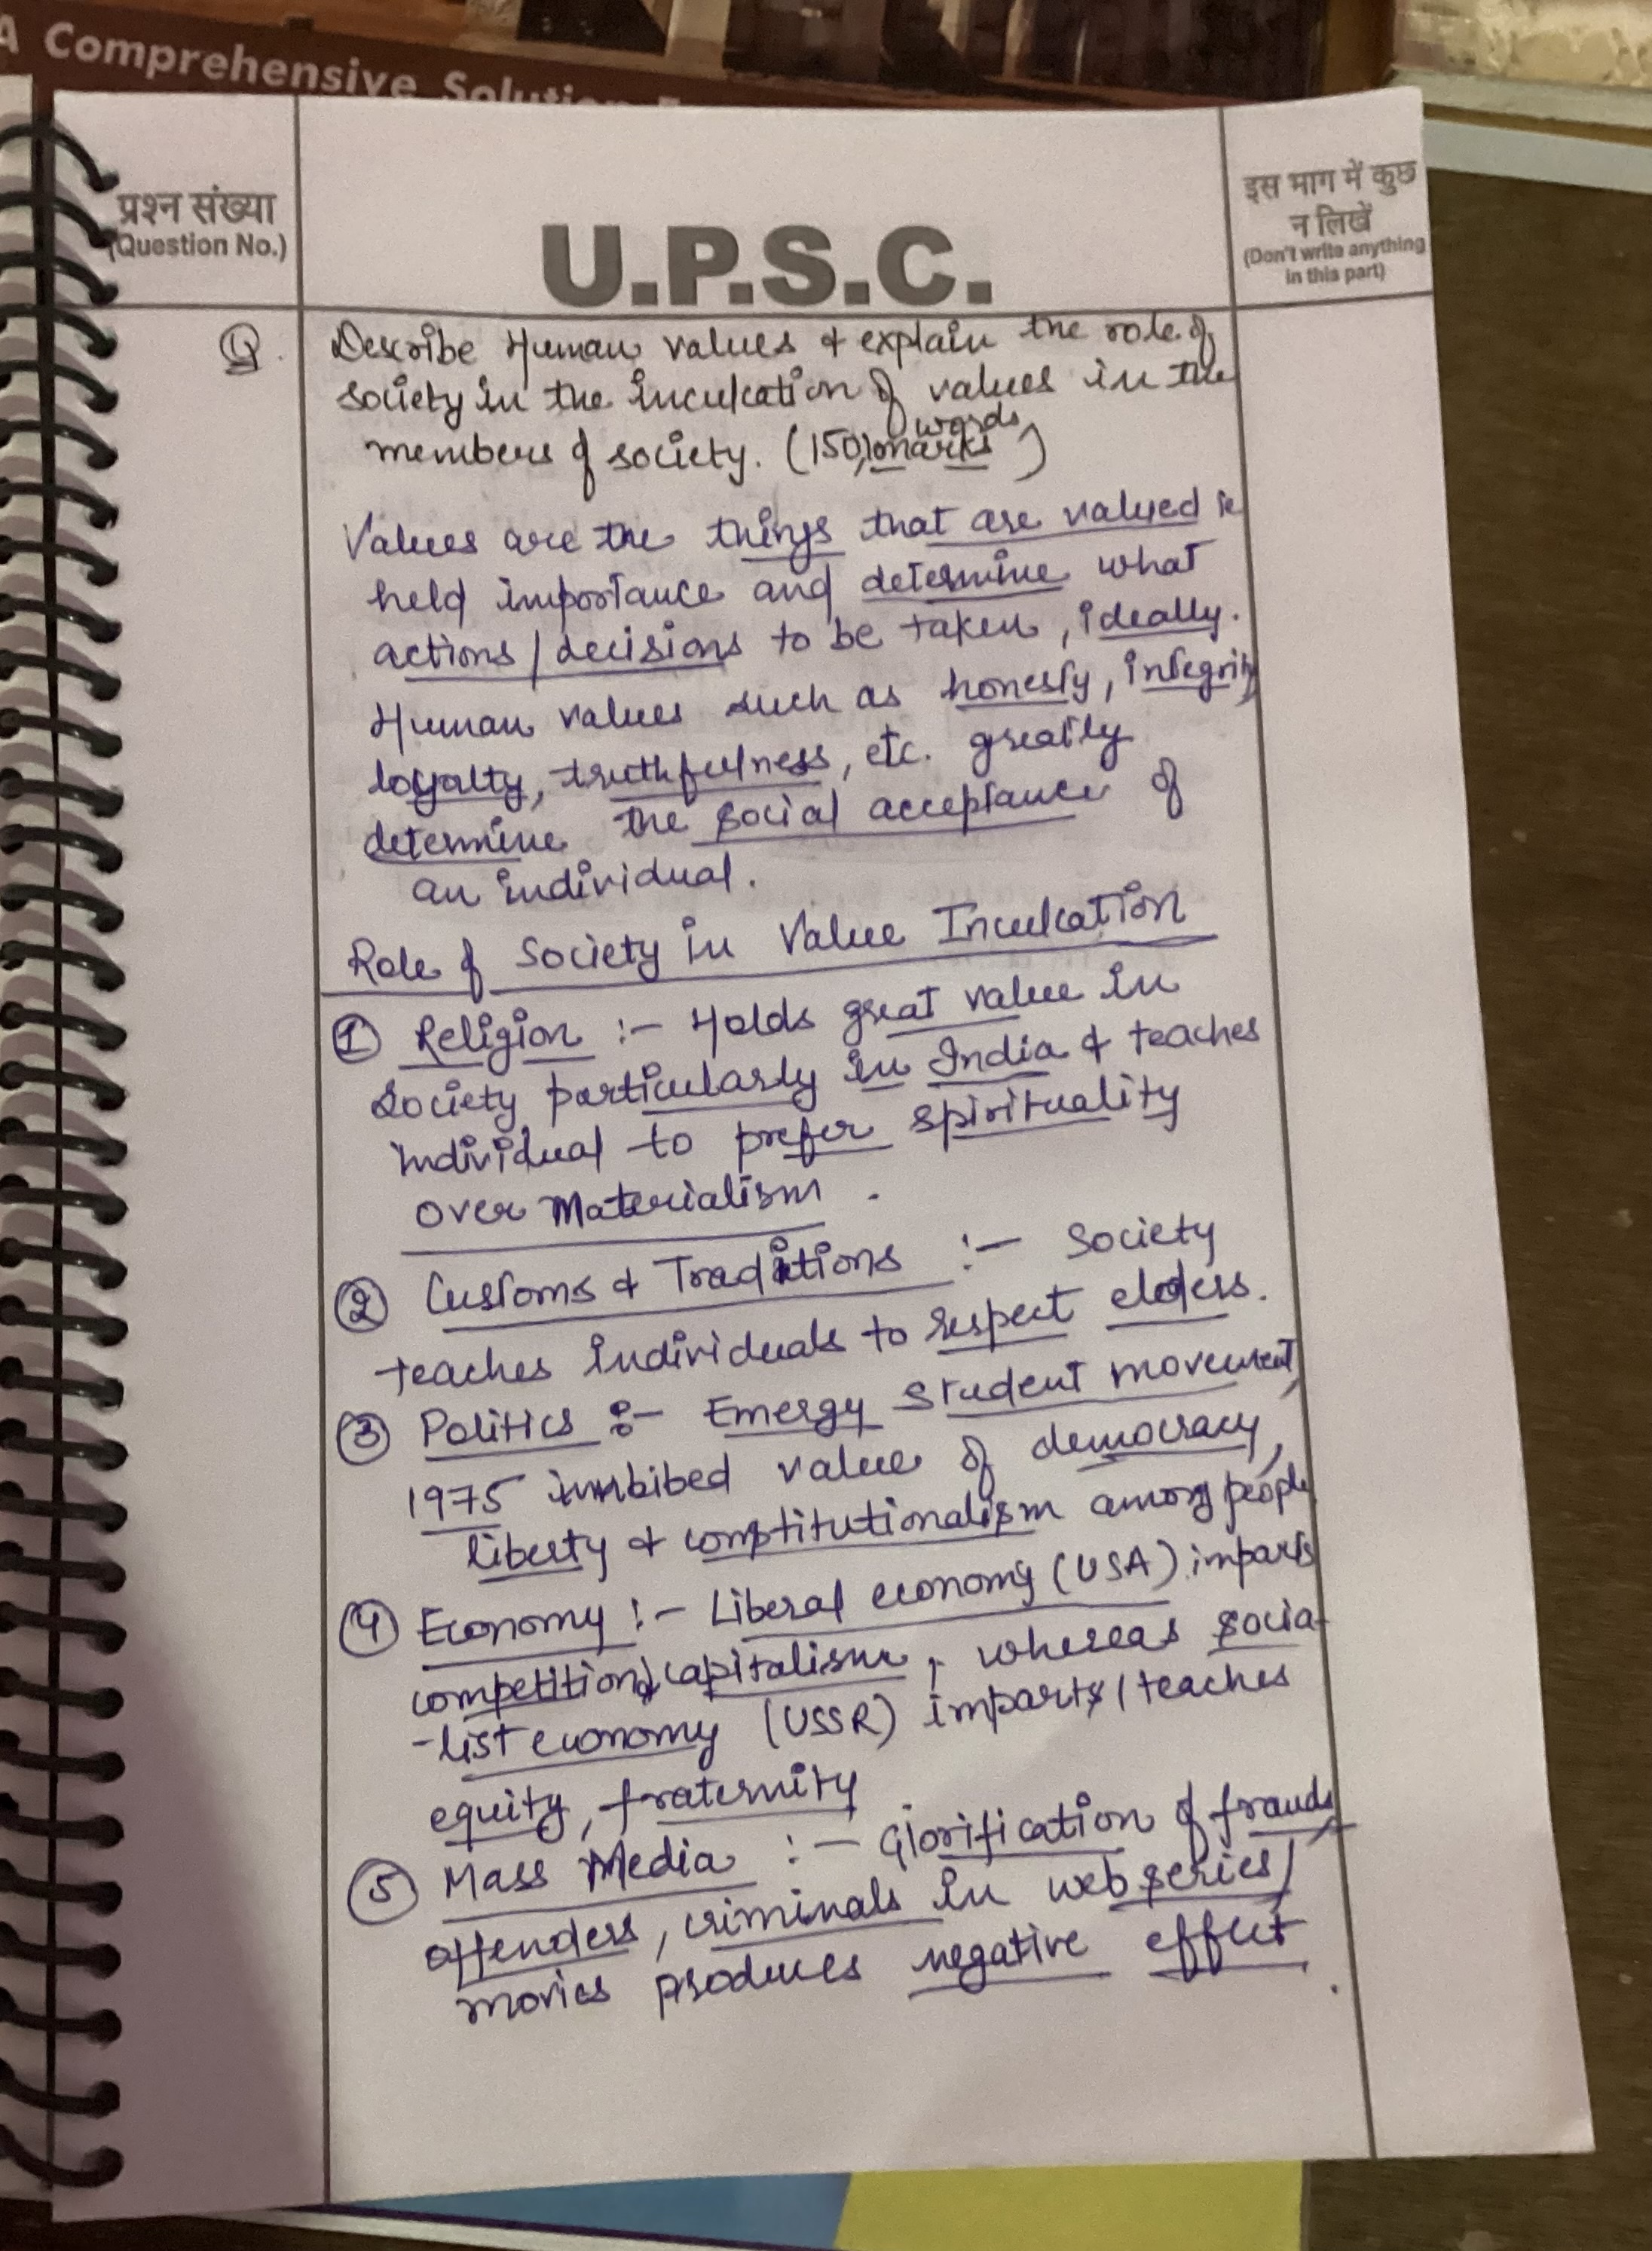 A Comprehensive Solution
प्रश्न संख्या
(Question No.)
U.P.S.C.
इस भाग में कुछ
न लिखें
(Don't write anything
in this part)
Q. Describe Human values & explain the role of
society in the inculcation of values in the
words
members of society. (150, marks)
Values are the things that are valued ie
held importance and determine what
actions/decisions to be taken, ideally.
Human values such as honesty, integrity
loyalty, truthfulness, etc. greatly
determine the social acceptance of
an individual.
Role of Society in Value Inculcation
① Religion :- Holds great value in
society particularly in India & teaches
individual to prefer spirituality
over Materialism.
② Customs & Traditions :- Society
teaches individuals to respect elders.
③ Politics :- Emergy student movement,
1975 imbibed value of democracy,
liberty & constitutionalism among people
④ Economy :- Liberal economy (USA) imparts
competition, capitalism, whereas socia-
-list economy (USSR) imparts/teaches
equity, fraternity
⑤ Mass Media :- Glorification of frauds,
offenders, criminals in web series/
movies produces negative effect.